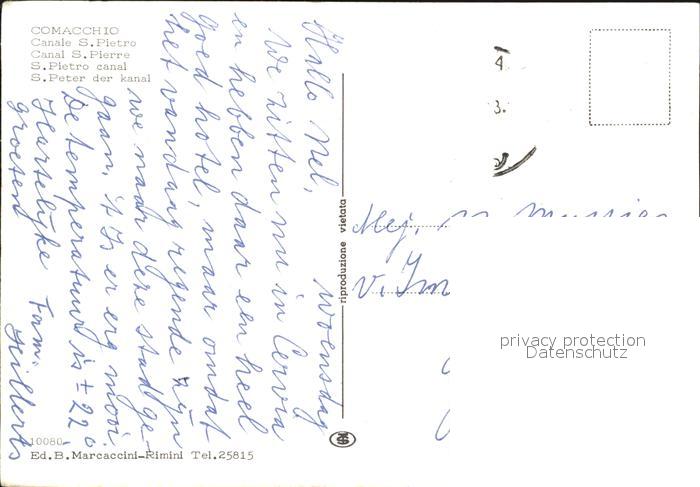 COMACCHIO
Canale S.Pietro
Canal S.Pierre
S.Pietro canal
S.Peter der kanal
Woensdag
Hallo Nel,
We zitten nu in Cervia
en hebben daar een heel
goed hotel, maar omdat
het vandaag regende zijn
we naar deze stad ge-
gaan, 't Is er erg mooi.
De temperatuur is ± 22°.
Hartelijke Fam.
groeten Hilberts
riproduzione vietata
4
3.
Mej.
v.
privacy protection
Datenschutz
10080
Ed.B.Marcaccini-Rimini Tel.25815